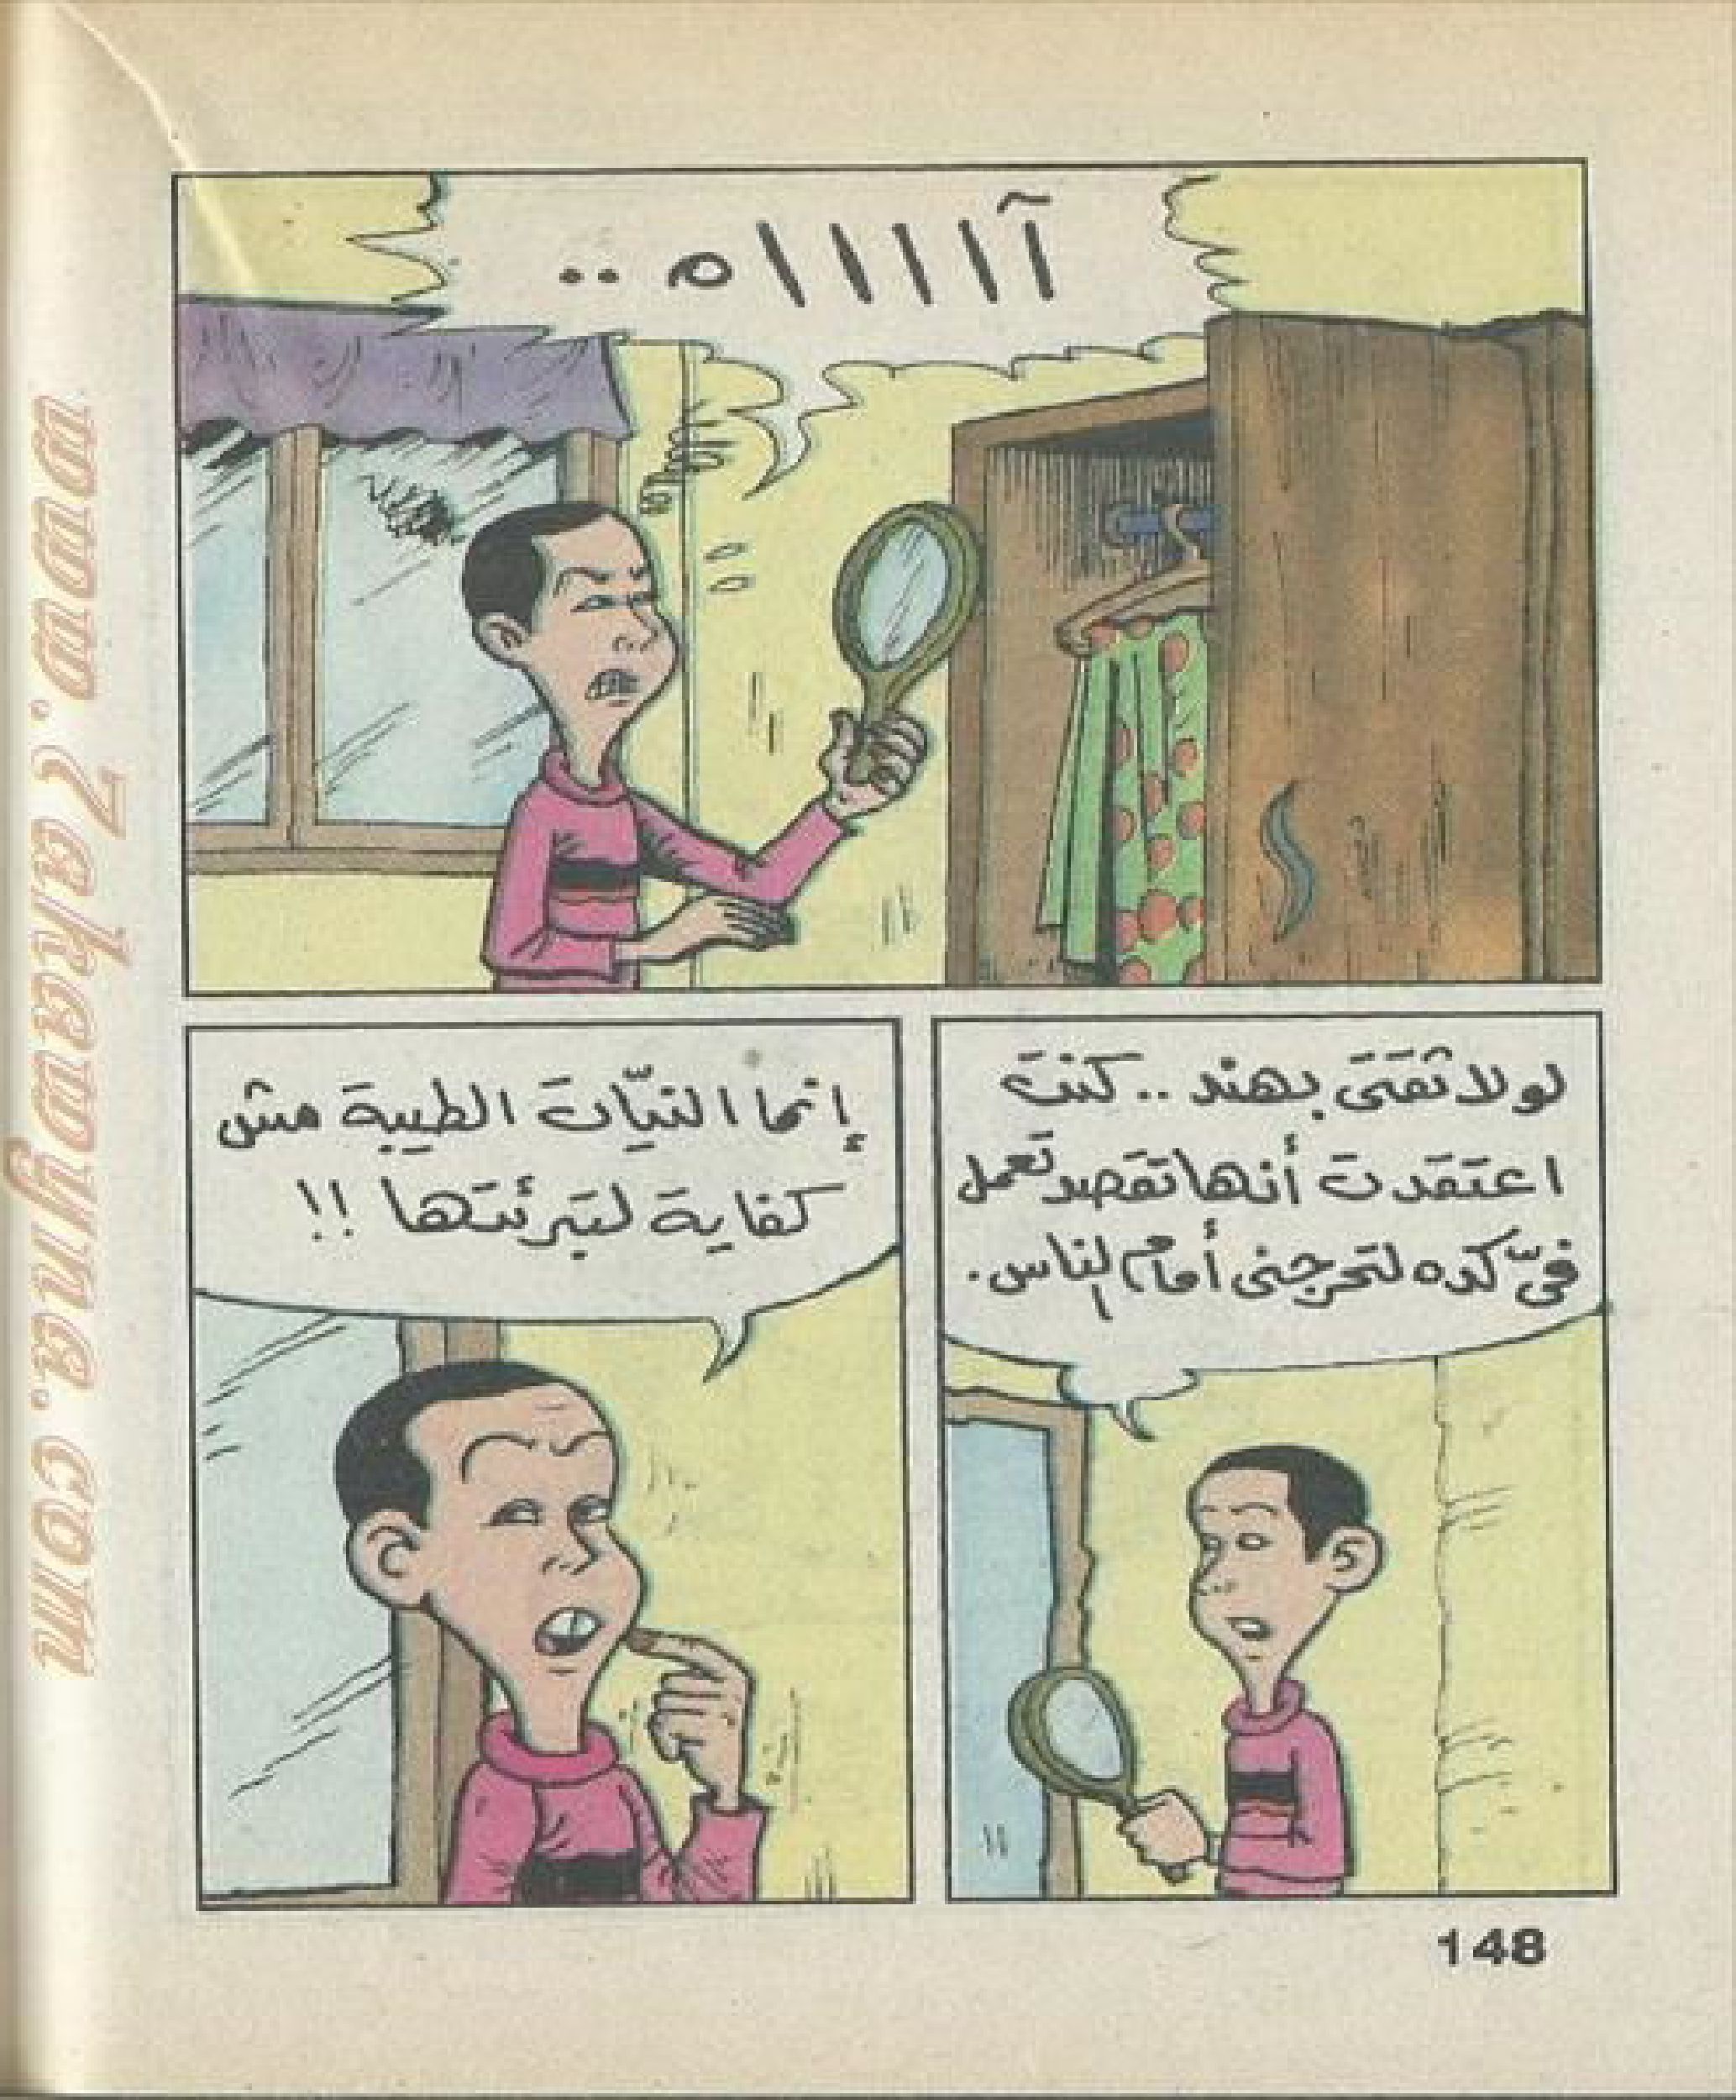 آاااااه ..
لولا ثقتى بهند .. كنت
اعتقدت أنها تقصد تعمل
فىّ كده لتحرجنى أمام الناس .
إنما النيّات الطيبة مش
كفاية لتبرئتها !!
148
www.7akawyna.com